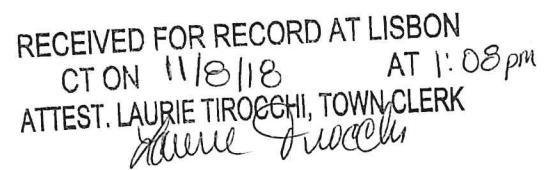 RECEIVED FOR RECORD AT LISBON
CT ON 11/8/18 AT 1:08 pm
ATTEST. LAURIE TIROCCHI, TOWN CLERK
Laurie Tirocchi